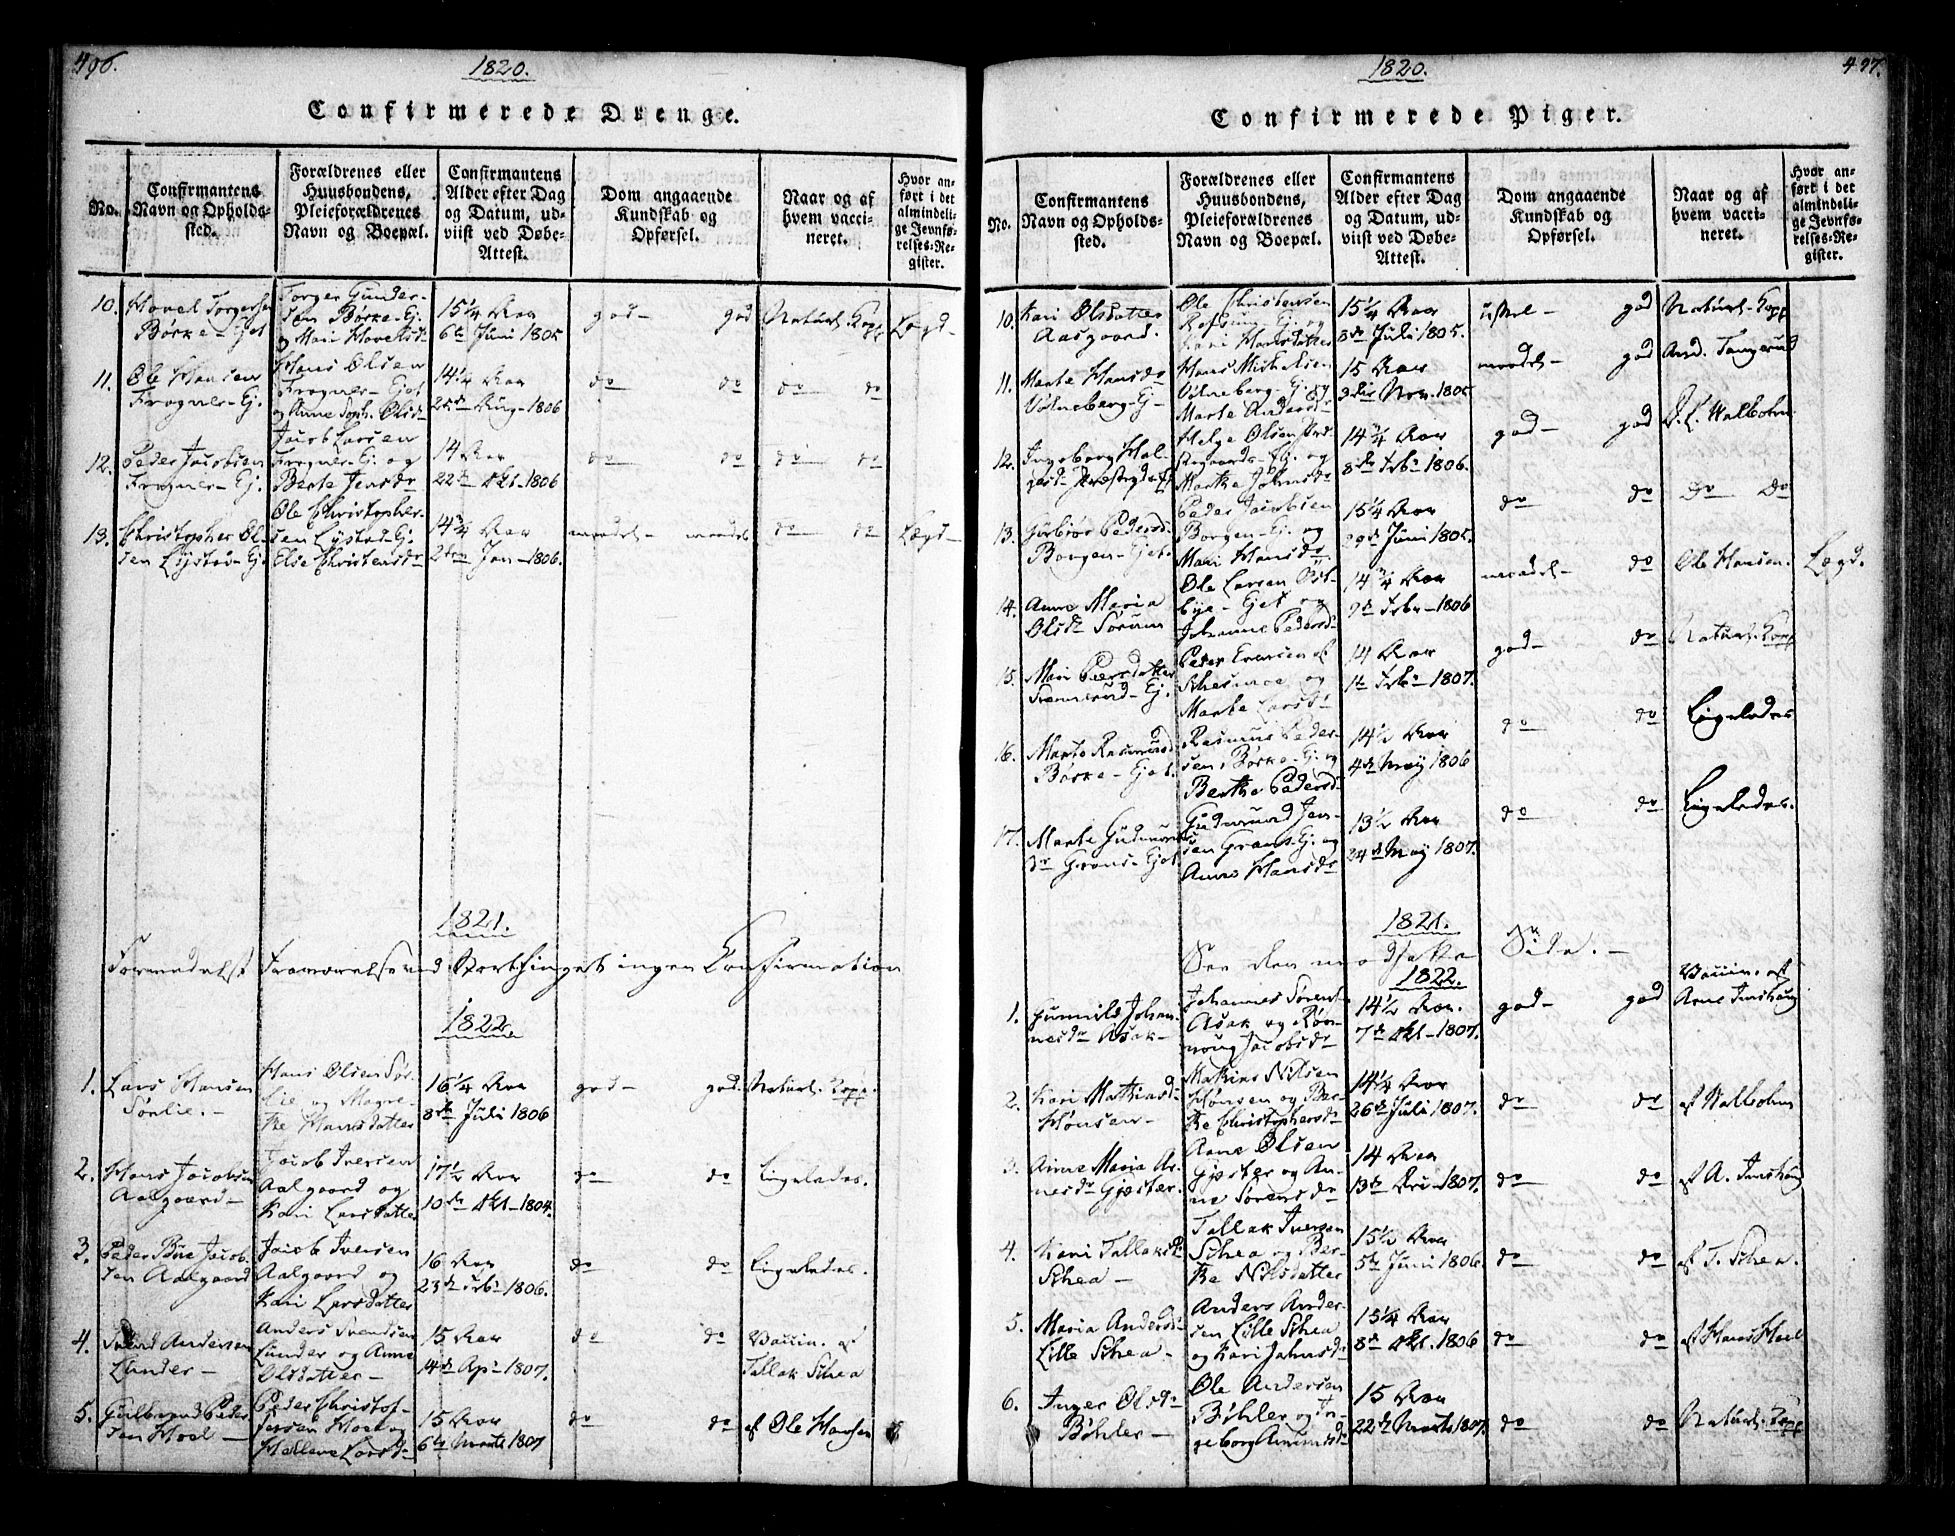 496.
1820.
Confirmerede Drenge.
No.
Confirmantens
Navn og Opholds-
sted.
Forældrenes eller
Huusbondens,
Pleieforældrenes
Navn og Boepæl.
Confirmantens
Alder efter Dag
og Datum, ud-
viist ved Døbe-
Attest.
Dom angaaende
Kundskab og
Opførsel.
Naar og af
hvem vacci-
neret.
Hvor an-
ført i det
almindeli-
ge Jevnfø-
relses-Re-
gister.
10.
Hovel Torgersen
Børke-Ejet
Torger Gunder-
sen Børke-Ej.
og Mari Hovelsdr
15 1/4 Aar
6te Juni 1805
god- god
Naturl. Kopp
Lægd-
11.
Ole Hansen
Frogner-Ej.
Hans Olsen
Frogner-Ejet
og Anne Soph. Olsdr
14 1/4 Aar
25de Aug-1806
do do
do do
12.
Peder Jacobsen
Frogner-Ej.
Jacob Larsen
Frogner-Ej. og
Berte Jensdr
14 Aar
22de Okt-1806
do do
do do
13.
Christopher Ol-
sen Lystad-Ej.
Ole Christopher-
sen Lystad-Ej.
Else Christensdr
14 3/4 Aar
2den Jan-1806.
maadel- maadel
do do
Lægd-
1821.
Formedelst Fraværelse ved Storthinget ingen Confirmation
1822.
1.
Lars Hansen
Sørlie.-
Hans Olsen Sør-
lie og Magre-
the Hansdatter
16 1/4 Aar
8de Juli 1806
god- god.
Naturl. Kopp.
2.
Hans Jacobsen
Aalgaard-
Jacob Iversen
Aalgaard og
Kari Larsdatter
17 1/2 Aar
10de Okt-1804.
do do
Ligeledes.
3.
Peder Bue Jacob-
sen Aalgaard
Jacob Iversen
Aalgaard og
Kari Larsdatter
16 Aar
23de Febr 1806.
do do
Ligeledes.
4.
Svend Andersen
Lunder-
Anders Svendsen
Lunder og Anne
Olsdatter-
15 Aar
4de Apr 1807.
do do
Vaccin. af
Tallak Schea
5.
Gulbrand Peder
sen Hoel-
Peder Christof-
fersen Hoel og
Hellene Larsd-
15 Aar
6te Marts 1807
do do
af Ole Hansen
497.
1820.
Confirmerede Piger.
No.
Confirmantens
Navn og Opholds-
sted.
Forældrenes eller
Huusbondens,
Pleieforældrenes
Navn og Boepæl.
Confirmantens
Alder efter Dag
og Datum, ud-
viist ved Døbe-
Attest.
Dom angaaende
Kundskab og
Opførsel.
Naar og af
hvem vacci-
neret.
Hvor an-
ført i det
almindeli-
ge Jevnfø-
relses-Re-
gister.
10.
Kari Olsdatter
Aasgaard.
Ole Christensen
Ej. og
Kari Hansdatter
15 1/4 Aar
3de Juli 1805.
god
Naturl. Kopp
11.
Marte Hansdr
Volneberg-Ej-
Hans Michelsen
Volneberg-Ej. og
Marte Andersdr
15 Aar
3die Nov. 1805
maadel- god
And. Tangerud
12.
Ingeborg Hel-
gesdr
Helge Olsen Præ
stegaards-Ej. og
Marthe Johnsdr
14 3/4 Aar
8de Febr 1806.
god- god
Walbohm
13.
Gurbrør Pedersd
Borgen-Ejet.
Peder Jacobsen
Borgen-Ej. og
Mari Hansdr
15 1/4 Aar
29de Juni 1805.
do do
Do Do
14.
Anne Maria
Olsdr Sørum
Ole Larsen Øst-
bye-Ejet og
Johanne Pedersd-
14 3/4 Aar
9de Febr-1806
maadel- do
Ole Hansen.
Lægd.
15.
Mari Pedersdatter
Svennerud-Ej.
Peder Evensen af
Schesmoe og
Marte Larsdr
14 Aar
1te Febr 1807.
god- do
Naturl. Kopp
16.
Marte Rasmusd
Børke-Ejet.
Rasmus Peder-
sen, Børke-Ej. og
Berthe Pedersd-
14 1/2 Aar
4de May 1806
do do
Ligeledes
17.
Marte Gudmunds
dr Grans-Ejet.
Gudmund Jen-
sen Grans-Ej. og
Anne Hansdr
13 1/2 Aar
24de May 1807.
do do
Ligeledes.
1821.
See den modsatte Side.-
1822.
1.
Gunnild Johan
nesdr Asak-
Johannes Sørens-
Asak og Røn-
noug Jacobsdr
14 1/2 Aar.
7de Okt-1807.
god- god
Vaccin. af
Arne Imshaug
2.
Kari Mathiasd
Hønsen-
Mathias Nilsen
Hønsen og Ber
the Christophersd
14 1/4 Aar
26de Juli 1807.
do do
af Walbohm
3.
Anne Maria Ar-
nesdr Gjestær.
Arne Olsen
Gjester og An-
ne Sørensdr
14 Aar
13de 1807.
do do
af A. Imshaug
4.
Kari Tallaksdr
Schea-
Tallak Iversen
Schea og Ber-
the Nilsdatter
15 1/2 Aar
5te Juni 1806
do do
af T. Schea.
5.
Maria Andersd
Lille Schea-
Anders Ander-
sen Lille Schea
og Kari Johnsdr
15 1/4 Aar
8de Okt. 1806
do do
af Hans Hoel
6.
Inger Olsdr
Bøhler-
Ole Andersen
Bøhler og In-
geborg Amundsdr
15 Aar
22de Marts 1807.
do do
Naturl. Kopp